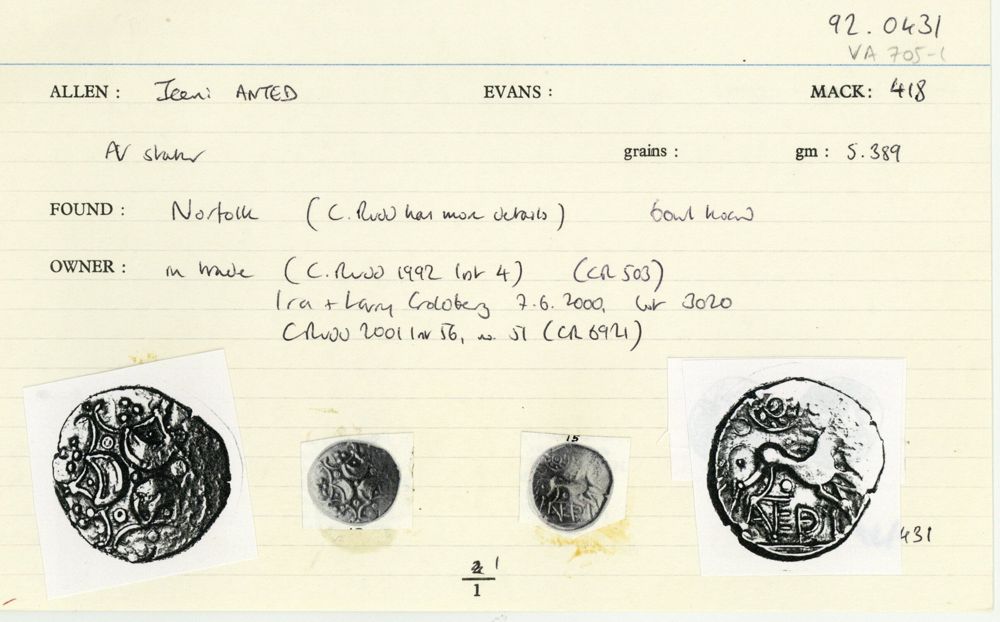 92.0431
VA 705-1
ALLEN: Iceni ANTED EVANS: MACK: 418
AV stater grains: gm: 5.389
FOUND: Norfolk (C. Rudd has more details) bowl hoard
OWNER: in trade (C. Rudd 1992 list 4) (CR 503)
Ira + Larry Goldberg 7.6.2000, lot 3020
C Rudd 2001 list 56, no. 51 (CR 6921)
15
431
1
1